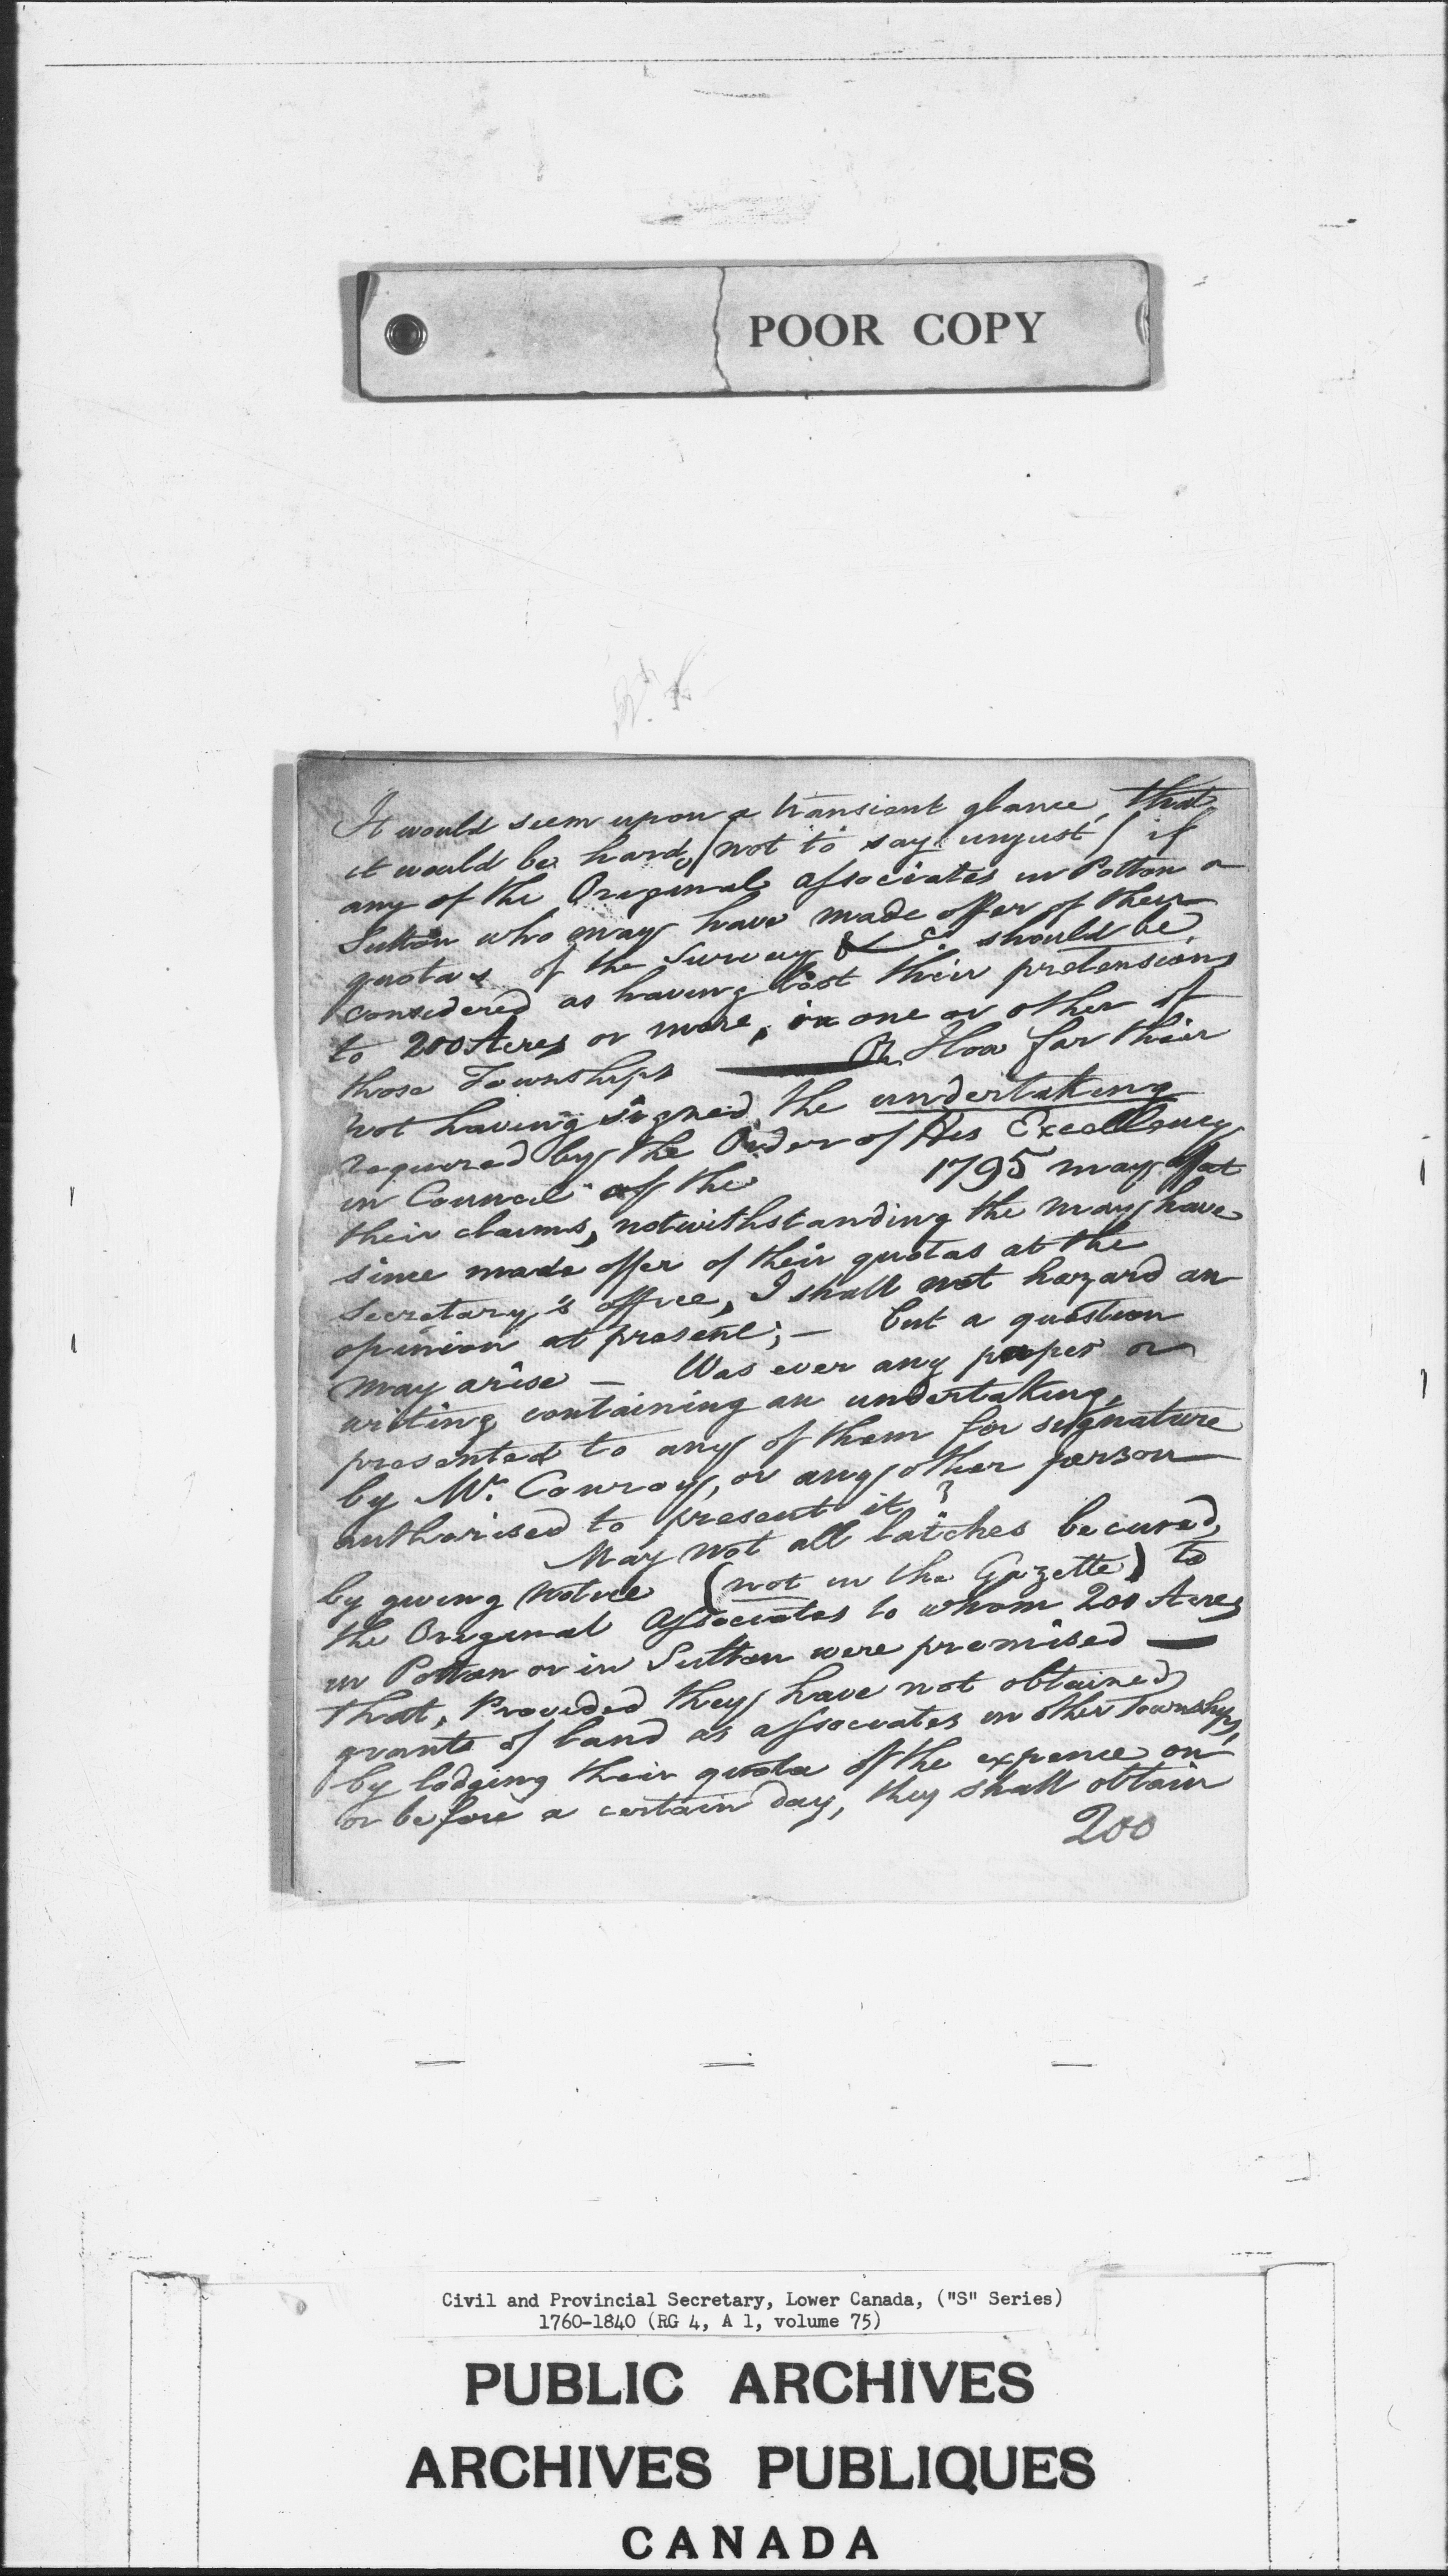 POOR COPY
It would seem upon a transient glance, that
it would be hard (not to say unjust) if
any of the Original associates in Potton or
Sutton who may have made offer of their
quotas of the Survey &c. should be
considered as having lost their pretensions
to 200 Acres or more, in one or other of
those Townships — How far their
not having signed the undertaking
required by the Order of His Excellency
in Council of the 1795 may affect
their claims, notwithstanding the may have
since made offer of their quotas at the
Secretary's office, I shall not hazard an
opinion at present; — but a question
may arise — Was ever any paper or
writing containing an undertaking,
presented to any of them for signature
by Mr. Conroy, or any other person
authorised to present it?
May not all latches be cured,
by giving notice (not in the Gazette) to
the Original Associates to whom 200 Acres
in Potton or in Sutton were promised —
that, Provided they have not obtained
grants of land as associates in other Townships,
by lodging their quota of the expence on
or before a certain day, they shall obtain
200
Civil and Provincial Secretary, Lower Canada, ("S" Series)
1760-1840 (RG 4, A 1, volume 75)
PUBLIC ARCHIVES
ARCHIVES PUBLIQUES
CANADA